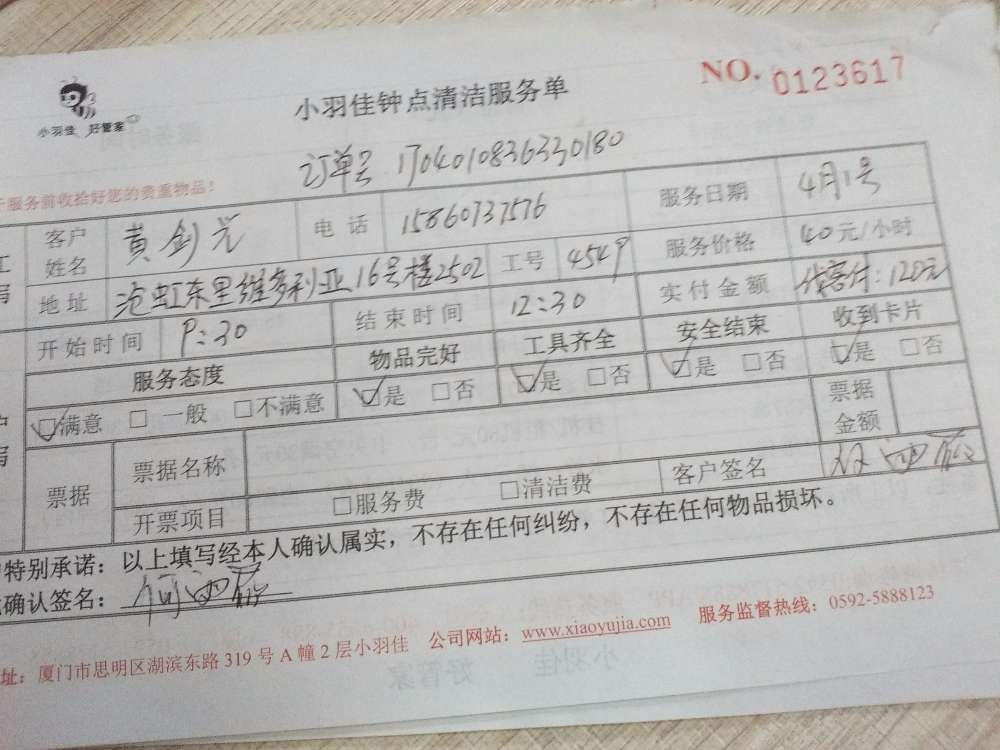 小羽佳 好管家
小羽佳钟点清洁服务单
NO. 0123617
订单号 1704010836330180
服务前收拾好您的贵重物品！
客户姓名 黄剑光 电话 15860737576 服务日期 4月1号
地址 沧虹东里维多利亚16号楼2502 工号 4549 服务价格 40元/小时
开始时间 9:30 结束时间 12:30 实付金额 代客付:120元
服务态度 物品完好 工具齐全 安全结束 收到卡片
☑满意 □一般 □不满意 ☑是 □否 ☑是 □否 ☑是 □否 ☑是 □否
票据 票据名称 票据金额
开票项目 □服务费 □清洁费 客户签名
特别承诺：以上填写经本人确认属实，不存在任何纠纷，不存在任何物品损坏。
确认签名：
址：厦门市思明区湖滨东路 319 号 A 幢 2 层小羽佳 公司网站：www.xiaoyujia.com 服务监督热线：0592-5888123